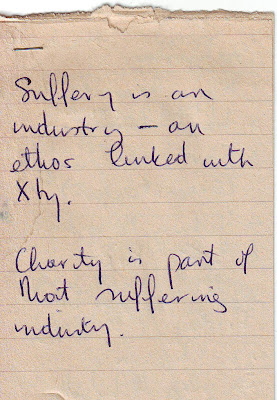 Suffery is an
industry – an
ethos linked with
Xty.
Charity is part of
that suffering
industry.